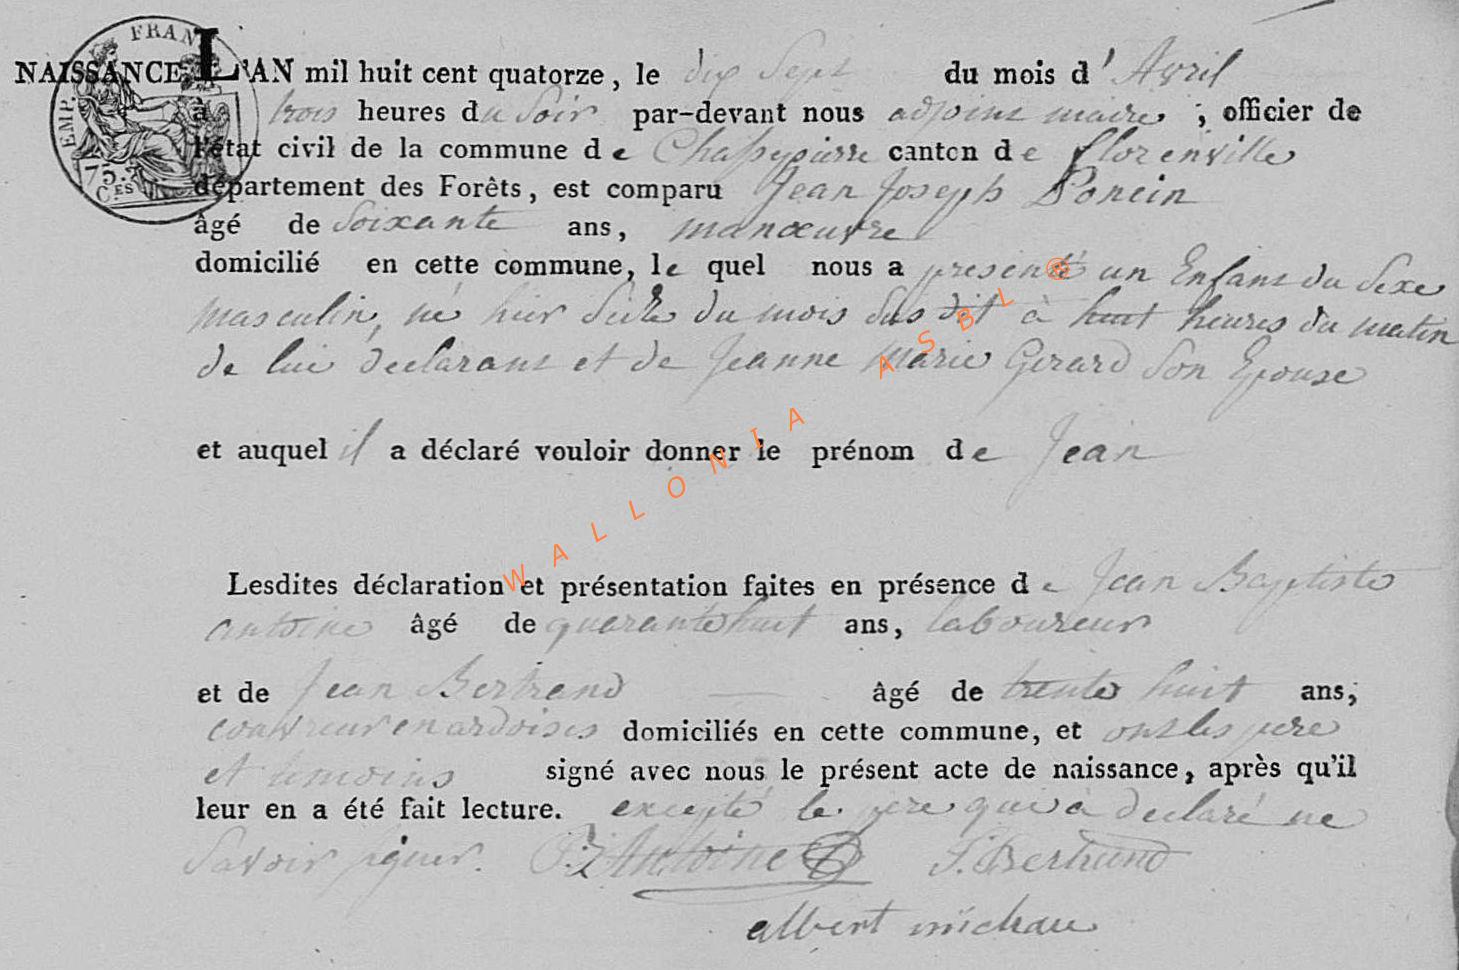 FRAN
EMP.
75.
C.ES
NAISSANCE L'AN mil huit cent quatorze, le dix Sept du mois d'Avril
à trois heures du Soir par-devant nous adjoint maire ; officier de
l'état civil de la commune de Chassepierre canton de florenville
département des Forêts, est comparu Jean Joseph Poncin
âgé de Soixante ans, manœuvre
domicilié en cette commune, le quel nous a presenté un Enfant du Sexe
masculin, né hier Seize du mois Sus dit à huit heures du matin
de lui déclarant et de Jeanne Marie Gerard Son Epouse
et auquel il a déclaré vouloir donner le prénom de Jean
Lesdites déclaration et présentation faites en présence de Jean Baptiste
antoine âgé de quarante huit ans, laboureur
et de Jean Bertrand âgé de trente huit ans,
couvreur en ardoises domiciliés en cette commune, et ont les pere
et temoins signé avec nous le présent acte de naissance, après qu'il
leur en a été fait lecture. excepté le pere qui à declaré ne
Savoir signer. Antoine J. Bertrand
albert michau
WALLONIA ASBL ®